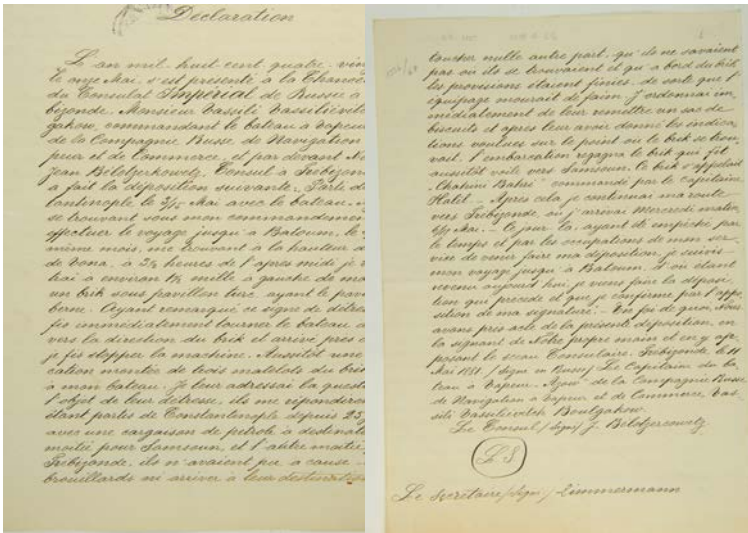 Déclaration
L'an mil huit cent quatre vin
le onze Mai, s'est présenté à la Chance
du Consulat Impérial de Russie à
bizonde, Monsieur Vassili Vassiliévit
gakow, commandant le bateau à vapeur
de la Compagnie Russe de Navigation
peur et de Commerce, et par devant
Jean Belotzerkowetz, Consul à Trébizon
a fait la déposition suivante: Partie de
tantinople le Mai avec le bateau
se trouvant sous mon commandemen
effectuer le voyage jusqu'à Batoum, le
même mois, me trouvant à la hauteur d
de Vona, à 2½ heures de l'après midi je
à environ 1½ mille à gauche de mo
un brik sous pavillon turc, ayant le pav
berne. Ayant remarqué ce signe de détres
fis immédiatement tourner le bateau
vers la direction du brik et arrivé près
je fis stopper la machine. Aussitôt une
cation montée de trois matelots du brik
à mon bateau. Je leur adressai la quest
l'objet de leur détresse, ils me répondiren
étant partis de Constantinople depuis 25
avec une cargaison de pétrole à destinat
moitié pour Samsoun, et l'autre moitié
Trébizonde, ils n'avaient pu à cause
brouillards ni arriver à leur destination
toucher nulle autre part, qu'ils ne savaient
pas où ils se trouvaient et qu'à bord du brik
les provisions étaient finies, de sorte que l'
équipage mourait de faim. J'ordonnai im
médiatement de leur remettre un sac de
biscuits et après leur avoir donné les indica
tions voulues sur le point où le brik se trou
vait, l'embarcation regagna le brik qui fit
aussitôt voile vers Samsoun. Ce brik s'appelait
"Chahini Bahri" commandé par le Capitaine
Halil. - Après cela je continuai ma route
vers Trébizonde, où j'arrivai Mercredi matin
Mai. - Ce jour là, ayant été empêché par
le temps et par les occupations de mon ser
vice de venir faire ma déposition, je suivis
mon voyage jusqu'à Batoum, d'où étant
revenu aujourd'hui, je viens faire la déposi
tion qui précède et que je confirme par l'appo
sition de ma signature. - En foi de quoi, Nous
avons pris acte de la présente déposition, en
la signant de Notre propre main et en y ap
posant le sceau Consulaire. Trébizonde, le 11
Mai 1881. /Signé en Russe/ Le Capitaine du ba
teau à vapeur "Azow" de la Compagnie Russe
de Navigation à vapeur et de Commerce, Vas
sili Vassiliévitch Boulgakow.
Le Consul /Signé/ J. Belotzercowetz
L.S
Le Secrétaire /Signé/ Zimmermann